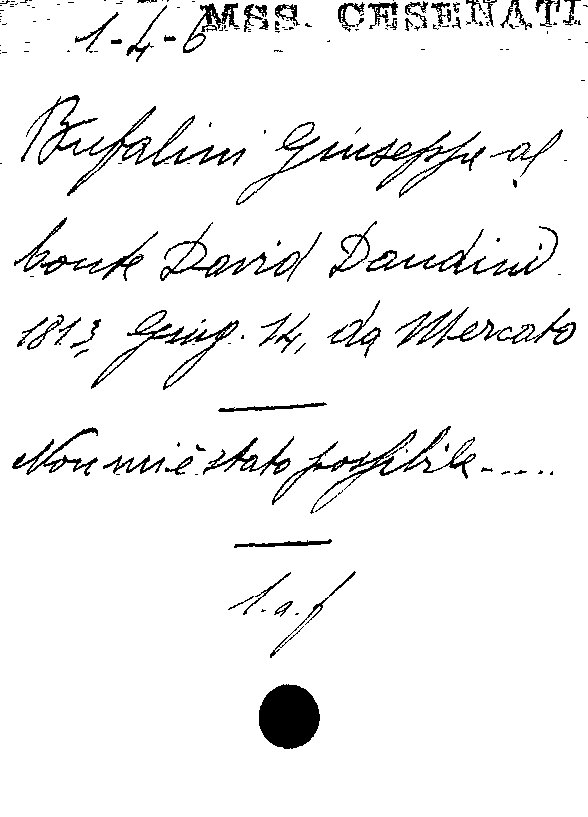 MSS. CESENATI
1-4-6
Bufalini Giuseppe al
Conte David Dandini
1813, Giug. 14, da Mercato
Non mi è stato possibile.....
l.a.f